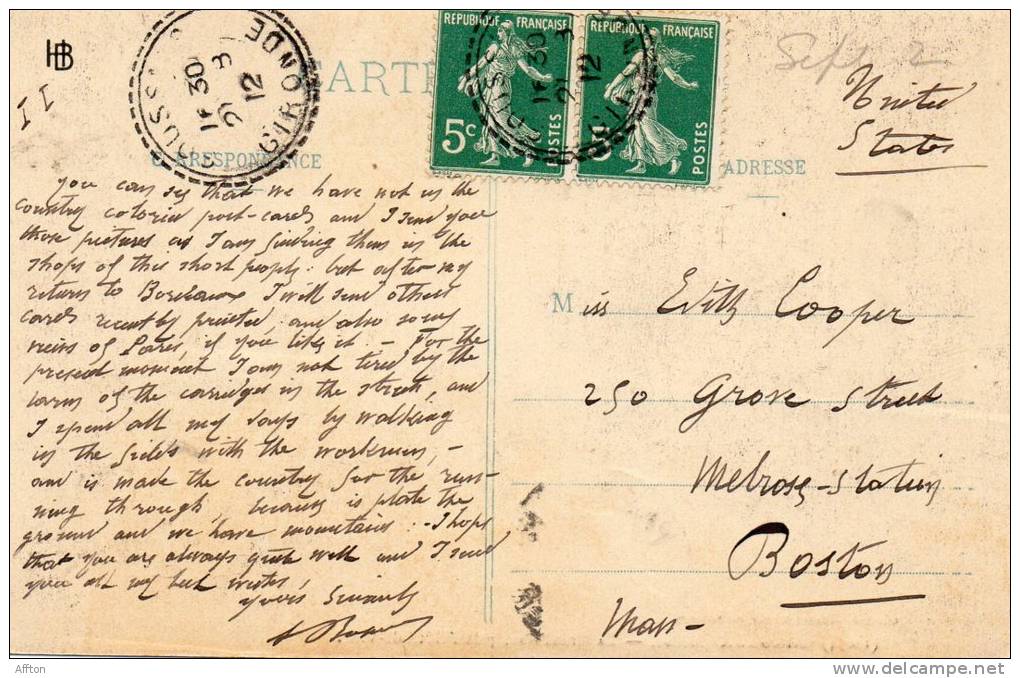 HB
II
16 30
21 8
12
GIRONDE
CARTE
RÉPUBLIQUE FRANÇAISE
5c
POSTES
RÉPUBLIQUE FRANÇAISE
POSTES
Sept 2
United
States
CORRESPONDANCE
ADRESSE
you can see that we have not in the
country colored post-cards and I send you
those pictures as I am finding them in the
shops of this short people: but after my
return to Bordeaux I will send others
cards recently printed, and also some
veins of Paris, if you like it. - For the
present moment I am not tired by the
larm of the carridges in the streets, and
I spend all my days by walking
in the fields with the workmen, -
and is made the country for the run-
ning through, because is plate the
ground and we have mountains: - I hope
that you are always quite well and I send
you all my best wishes,
yours sincerely
Miss Edith Cooper
250 Grove Street
Melrose-Station
Boston
Mass-
Afton
delcampe.net